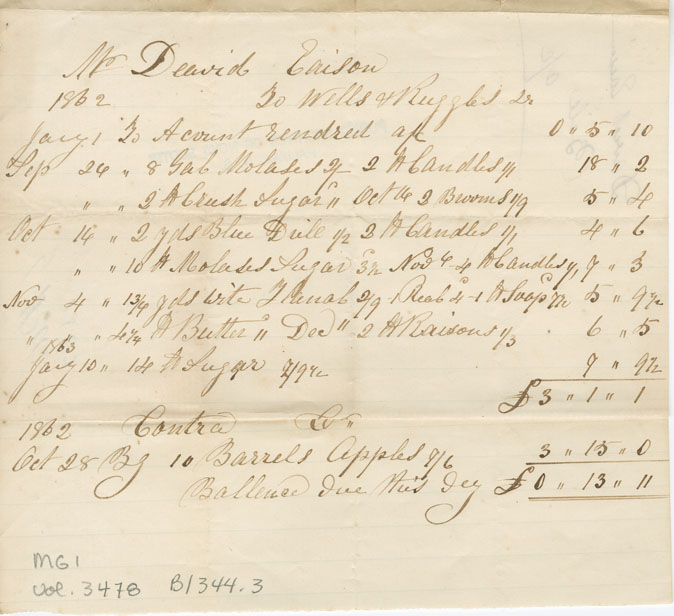 Mr Deavid Eaison
1862 To Wells & Ruggles Dr
Jany 1 To Acount rendred a/c 0 " 5 " 10
Sep 26 " 8 Gab Molases 2/ 2 ℔ Candles 1/1 18 " 2
" " 2 ℔ Crush Sugar " Oct 14 2 Brooms 1/9 5 " 4
Oct 14 " 2 yds Blue Drile 1/2 2 ℔ Candles 1/1 4 " 6
" " 10 ℔ Molases Sugar 3½ Nov 4 ℔ Candles 1/1 7 " 3
Nov 4 " 1¾ yds wite Flanal 2/9 4 1 ℔ Soap 7½ 5 " 9½
" " 4¼ ℔ Butter " Dec " 2 ℔ Raisons 1/3 6 " 5
1863
Jany 10 " 14 ℔ Sugar 7 " 9½
£3 " 1 " 1
1862 Contra Cr "
Oct 28 By 10 Barrels Apples 7/6 3 " 15 " 0
Ballence due this dey £0 " 13 " 11
MG1
vol. 3478 B/344.3